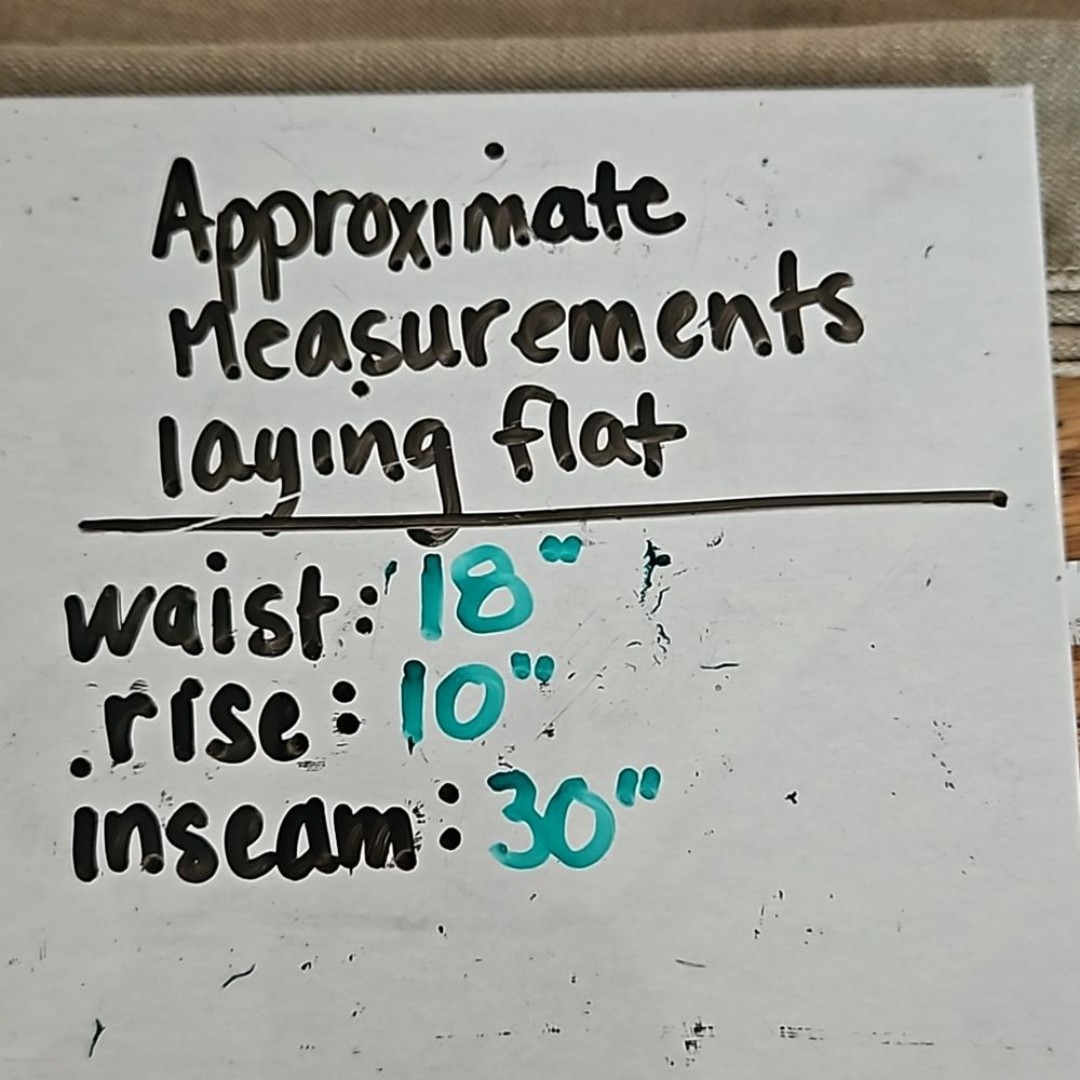 Approximate
Measurements
laying flat
waist: 18"
rise: 10"
inseam: 30"